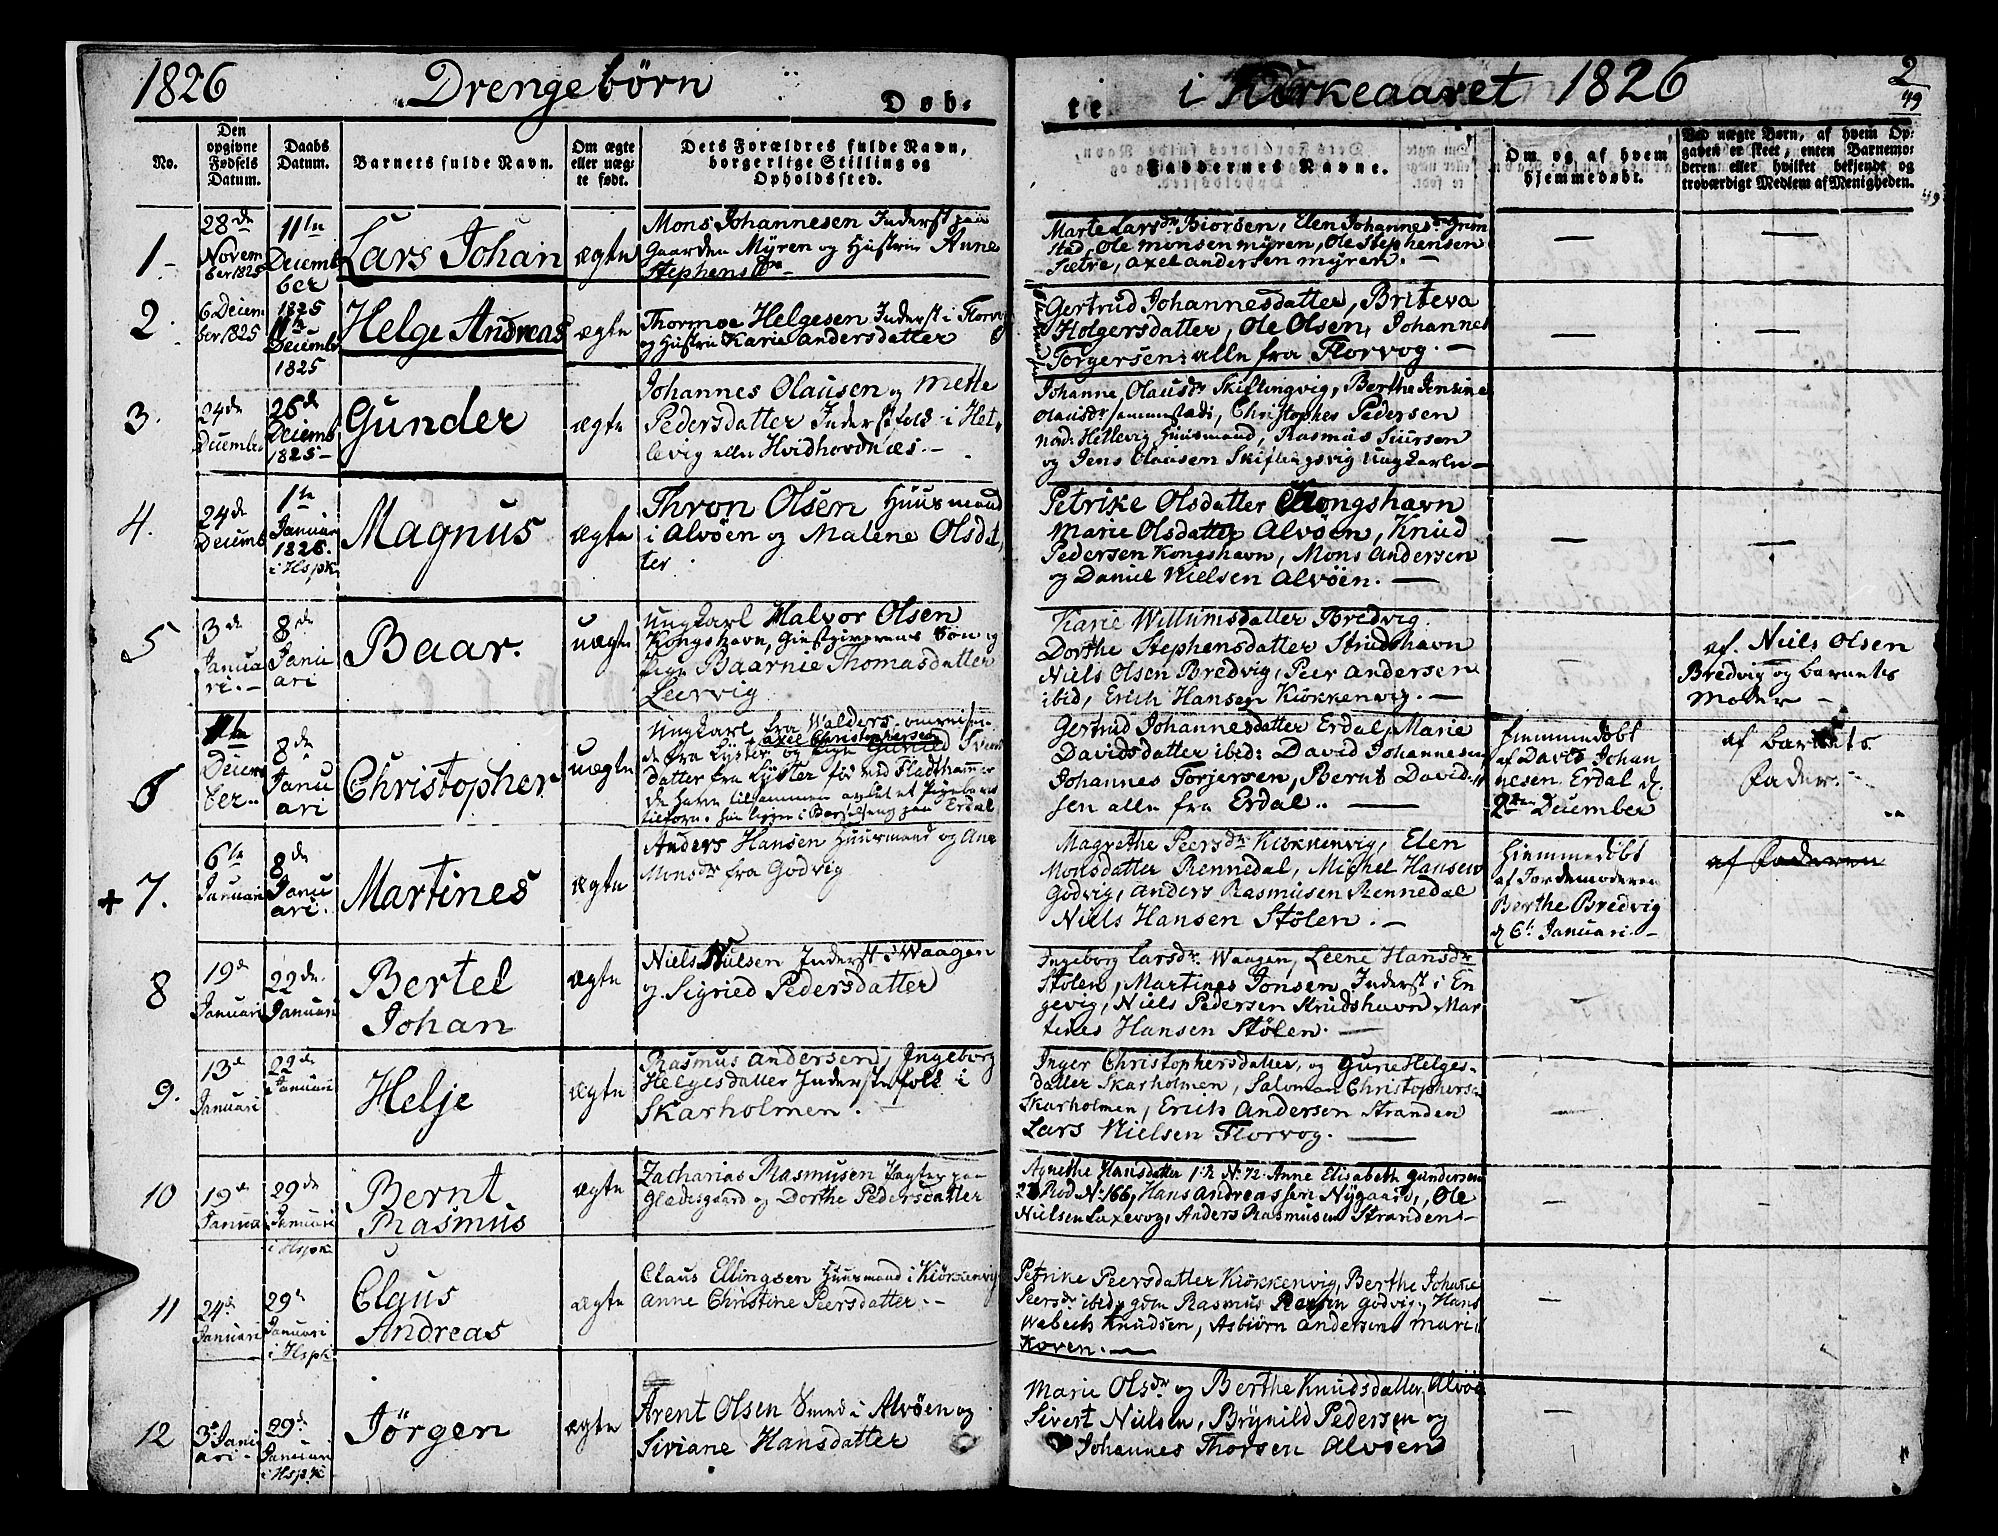 1826 Drengebörn Döb-
te i Kirkeaaret 1826 2
49
No.
Den
opgivne
Fødsels
Datum.
Daabs
Datum.
Barnets fulde Navn.
Om ægte
eller uæg-
te født.
Dets Forældres fulde Navn,
borgerlige Stilling og
Opholdssted.
Faddernes Navne.
Om og af hvem
hjemmedøbt.
Ved uægte Børn, af hvem Op-
gaven er skeet, enten Barnemo-
deren eller hvilket bekjendt og
troværdigt Medlem af Menigheden.
49
1
28de
Novem
ber 1825
11te
Decemb
ber
1825
Lars Johan
ægte
Mons Johannesen Inderst paa
Gaarden Myren og Hustrue Anne
Stephensdr
Marte Larsdr Biorsen, Elen Johannesdr Grim
stad, Ole Monsen Myren, Ole Stephensen
Sætre, Axel Andersen Myren. —
—
—
2.
6 Decem
ber 1825
11te
Decemb
1825
Helge Andreas
ægte
Thormoe Helgesen Inderst i Florvog
og Hustrue Karie Andersdatter
Gertrud Johannesdatter, Briteva
Holgersdatter, Ole Olsen, Johannes
Torgersen: alle fra Florvog. —
—
—
3.
24de
December
26de
Decemb
1825 —
Gunder
ægte
Johannes Olausen og Mette
Pedersdatter Inderstfolk i Het
levig eller Hvidhovdnæs. —
Johanne Olausdr Skiftingvig, Berthe Jensine
Olausdr sammestads, Christopher Pedersen
nord: Hetlevig Huusmand, Rasmus Siursen
og Jens Olausen Skiftingsvig Ungkarle —
4.
24de
Decemb
1te
Januar
1826.
i Hspk.
Magnus
ægte
Thron Olsen Huusmand
i Alvöen og Malene Olsdat
ter.
Petrike Olsdatter Kongshavn
Marie Olsdatter Alvöen, Knud
Pedersen Kongshavn, Mons Andersen
og Daniel Nielsen Alvöen. —
—
—
5
3de
Janua
ri. —
8de
Janu
ari
Baar.
uægte
Ungkarl Halvor Olsen
Kongshavn, Giestgiverens Søn og
Pige Baarnie Thomasdatter
Leervig
Karie Willumsdatter Bredvig.
Dorthe Stephensdatter Strudshavn
Niels Olsen Bredvig, Peer Andersen
ibid, Erich Hansen Kiökkenvig. —
—
af. Niels Olsen
Bredvig og barnets
Moder —
6
11te
Decem
ber..
8de
Janu
ari
Christopher
uægte
Ungkarl fra Walders omreisen
Axel Christophersen
de fra Lyster og Pige Gunild Svens
datter fra Lyster
de have tilsammen avlet et Pigebarn
tilforn. hun ligger i Barselseng paa Erdal
Gertrud Johannesdatter Erdal, Marie
Davidsdatter ibid: David Johannesen
Johannes Torjersen, Bernt David
sen alle fra Erdal.. —
Hiemmedöbt
af David Johan
nesen Erdal d.
December
af barnets
Fader. —
+ 7.
6te
Januari
8de
Janu
ari.
Martines
ægte
Anders Hansen Huusmand og Ane
Monsdr fra Godvig
Magrethe Peersdr Kiökkenvig, Elen
Monsdatter Rennedal, Michel Hansen
Godvig, Anders Rasmusen Rennedal
Niels Hansen Stölen. —
Hiemmedöbt
af Jordemoderen
Berthe Bredvig
d 6t Januari. —
af Faderen
8
19d
Januari
22de.
Januari
Bertel
Johan
ægte
Niels Nielsen Inderst i Waagen
og Sigried Pedersdatter
Ingeborg Larsdr. Waagen, Leene Hansdr
Stölen, Martines Jonsen Inderst i En
gevig, Niels Pedersen Strudshavn Mar
tines Hansen Stölen. —
—
9.
13d
Januari
22de
Januari
Helje
ægte
Rasmus Andersen, Ingeborg
Helgesdatter Inderstefolk i
Skarholmen. —
Inger Christophersdatter, og Gurie Helges-
datter Skarholmen, Saloman Christophersen
Skarholmen, Erich Andersen Stranden
Lars Nielsen Florvog. —
—
10
19d
Janua
29de
Januari
i Hspk
Bernt
Rasmus
ægte
Zacharias Rasmusen Pagter paa
Gladesgaard og Dorthe Pedersdatter
Agnethe Hansdatter 1: R No: 72. Anne Elisabeth Gundersen
2: Rod No: 166, Hans Andreas sen Nygaard, Ole
Nielsen Laxevog, Anders Rasmusen Stranden —
—
11
24de
Januari
29d
Januari
i Hspk
Claus
Andreas
ægte
Claus Ellingsen Huusmand i Kiökkenvig
Anne Christine Peersdatter. —
Petrike Peersdatter Kiökkenvig, Berthe Johanne
Peersdr ibid, Rasmus Godvig, Hans
Knudsen, Asbiörn Andersen Mari
Koven. —
—
12
3d Janu
ari —
29d
Januari
i Hspk
Jörgen
ægte
Arent Olsen Smed i Alvöen og
Siviane Hansdatter
Marie Olsdr og Berthe Knudsdatter, Alvöe
Sivert Nielsen, Brynild Pedersen og
Johannes Thorsen Alvöen
—